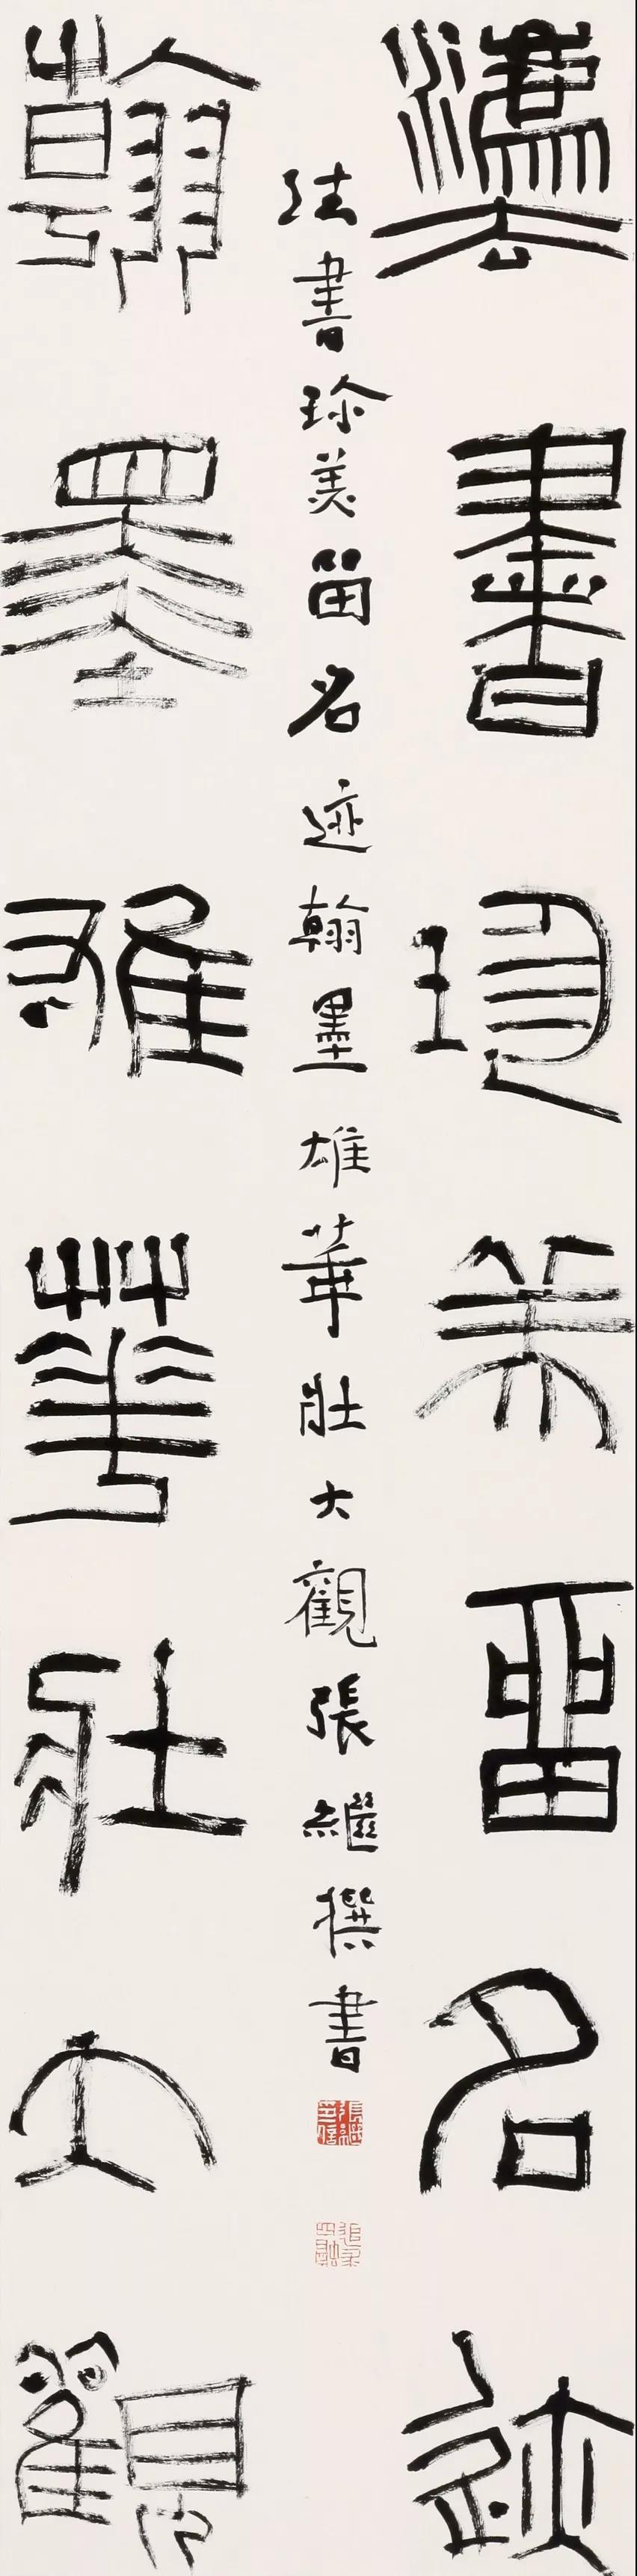 灋書珍美留名迹
翰墨雄華壯大觀
法書珍美留名迹翰墨雄華壯大觀張繼撰書
張繼印信